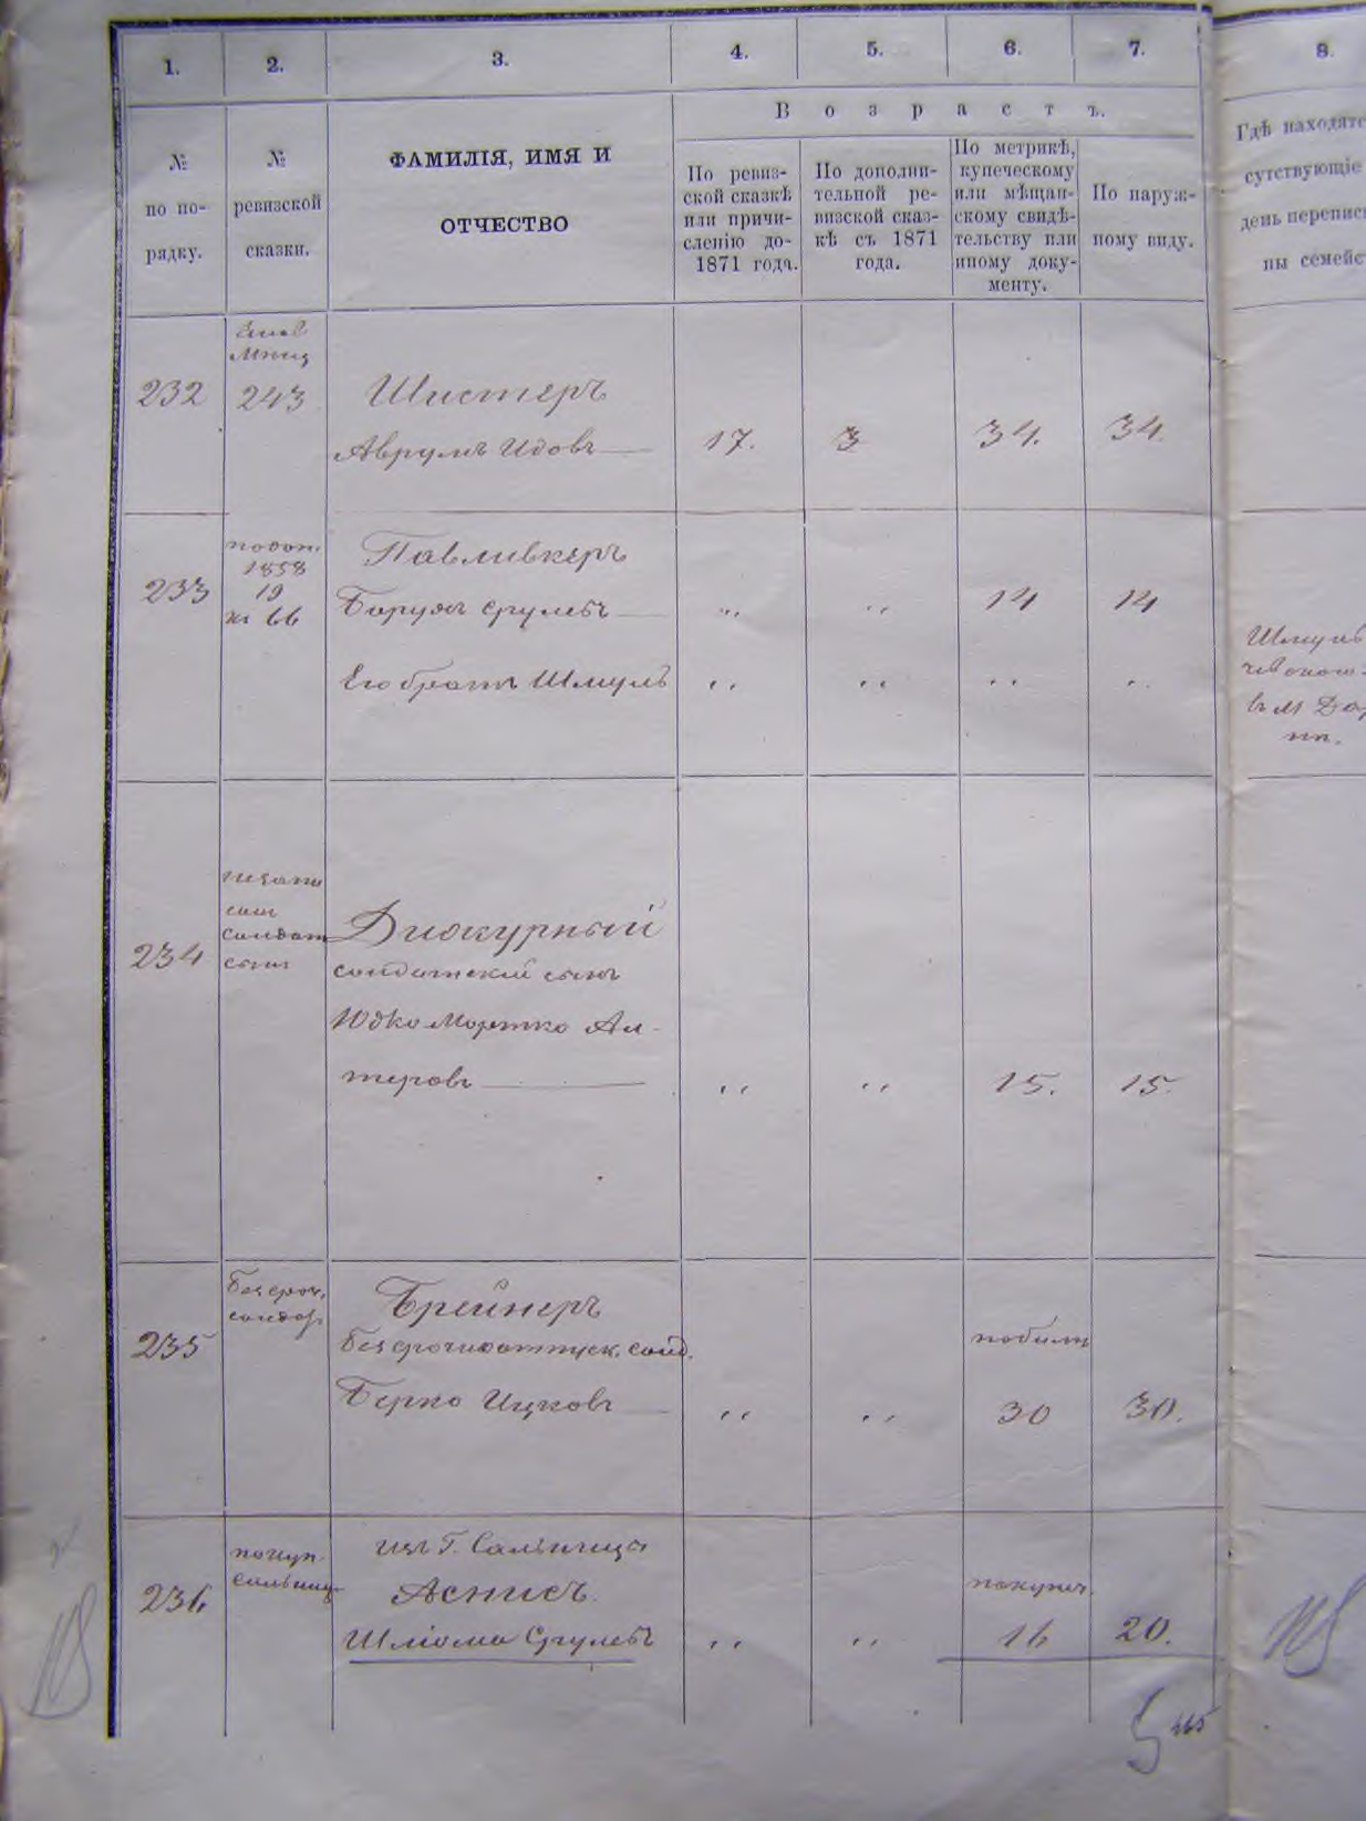 1. 2. 3. 4. 5. 6. 7. 8.
№
по по-
рядку.
№
ревизской
сказки.
ФАМИЛІЯ, ИМЯ И
ОТЧЕСТВО
Возрастъ.
По ревиз-
ской сказкѣ
или причи-
сленію до-
1871 года.
По дополни-
тельной ре-
визской сказ-
кѣ съ 1871
года.
По метрикѣ,
купеческому
или мѣщан-
скому свидѣ-
тельству или
иному доку-
менту.
По наруж-
ному виду.
Гдѣ находятс
сутствующіе
день переписи
ны семейс
232
243
Шистеръ
Аврумъ Идовъ
17. 3 34. 34.
233
1858
19
66
Павливкеръ
Борухъ Срулевъ
" " 14 14
Его братъ Шмуль
" " " "
Шмуль
234
солдат
сынъ
Дискурный
солдатскій сынъ
Юдко Мортко Ал-
теровъ
" " 15. 15.
235
Безсроч.
солдат
Брейнеръ
Безсрочноотпуск. солд.
побилету
Берко Ицковъ
" " 30 30.
236
изъ Г. Сальницы
Аснисъ
Шліома Срулевъ
" " 16 20.